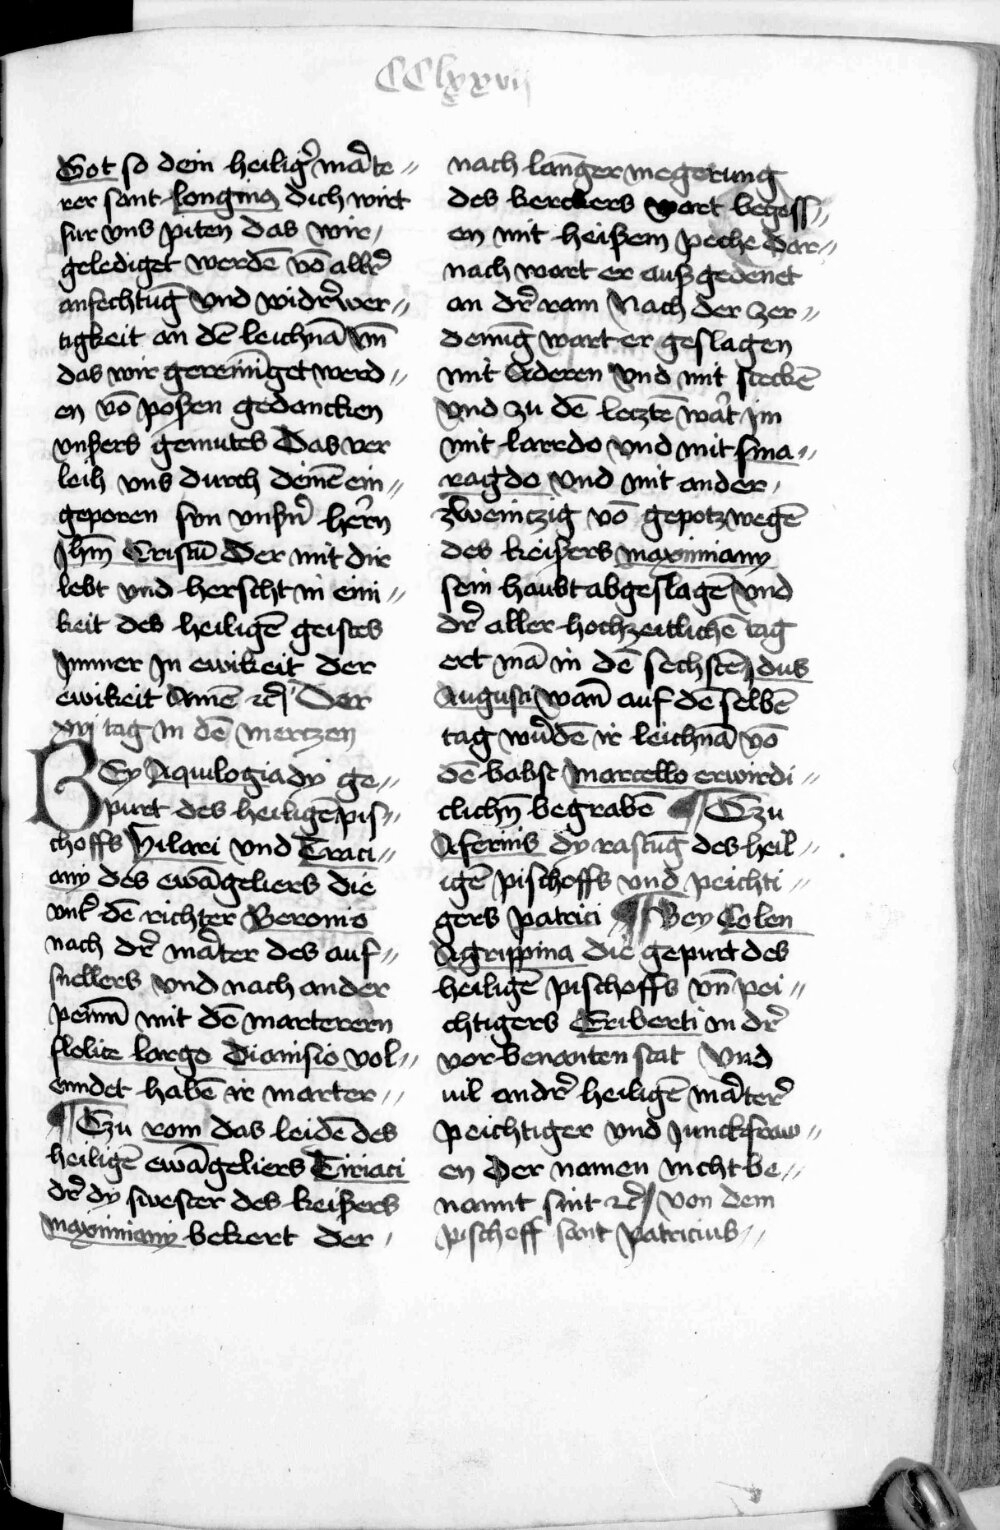 CClxxvij
Got so dein heiligr̄ mar̄te〃
rer sant longinꝯ dich wirt
fur vns piten das wir /
gelediget werdē vō allr̄
anfechtūg vnd widr̄wer〃
tigkeit an dē leichnā vn̄
das wir gereiniget werd〃
en vō poßen gedancken
vnßers gemutes Das ver
leih vns durch deinē ein〃
geporen sun vnsn̄ herrn
Jhm̄ Cristū Der mit dir
lebt vnd herscht in eini〃
keit des heiligē geistes
Jmmer Jn ewikeit der
ewikeit Amē ⁊cͣ Der
xvj tag in dē mertzen
BEy Aquilogia dy ge〃
purt des heiligē pis〃
choffs Hilari vnd Traci〃
any des ewāgeliers die
vntr̄ dē richter Beromo
nach dr̄ mar̄ter des auf〃
snellers vnd nach ander
peinn̄ mit dē marterern
flolice largo Dionisio vol〃
enndet habē ir marter〃
¶ Tzu rom das leidē des
heiligē ewāgeliers Tiriaci
dr̄ dy swester des keißers
maximiany bekert der /
nach langer megerung
des kerckers wart begoss〃
en mit heißem peche Dar〃
nach wart er auß gedenet
an dr̄ ram Nach der zer〃
denūg wart er geslagen
mit Aderen vnd mit steckē
vnd zu dē letztē wart im
mit laredo vnd mit sma〃
ragdo vnd mit ander /
zweintzig vō gepotz wegē
des keißers maximiany
sein haubt abgeslagē vnd
dr̄ aller hochzeitlichē tag
ert mā in dē sechstē Jdus
Augusti wān auf dē selbē
tag wur̄dē ir leichnā vō
dē babst Marcello erwirdi〃
clichn̄ begrabē ¶ Tzu
Afernis dy rastūg des heil〃
igē pischoffs vnd peichti〃
gers Patrici ¶ Bey Colen
Agrippina die gepurt des
heiligē pischoffs vn̄ pei〃
chtigers Eriberti in dr̄
vorbenanten stat Vnd
uil andr̄ heiligē mar̄terr̄
peichtiger vnd Junckfraw〃
en Der namen nicht be〃
nannt sint ⁊cͣ Von dem
pischoff sant Patricius〃